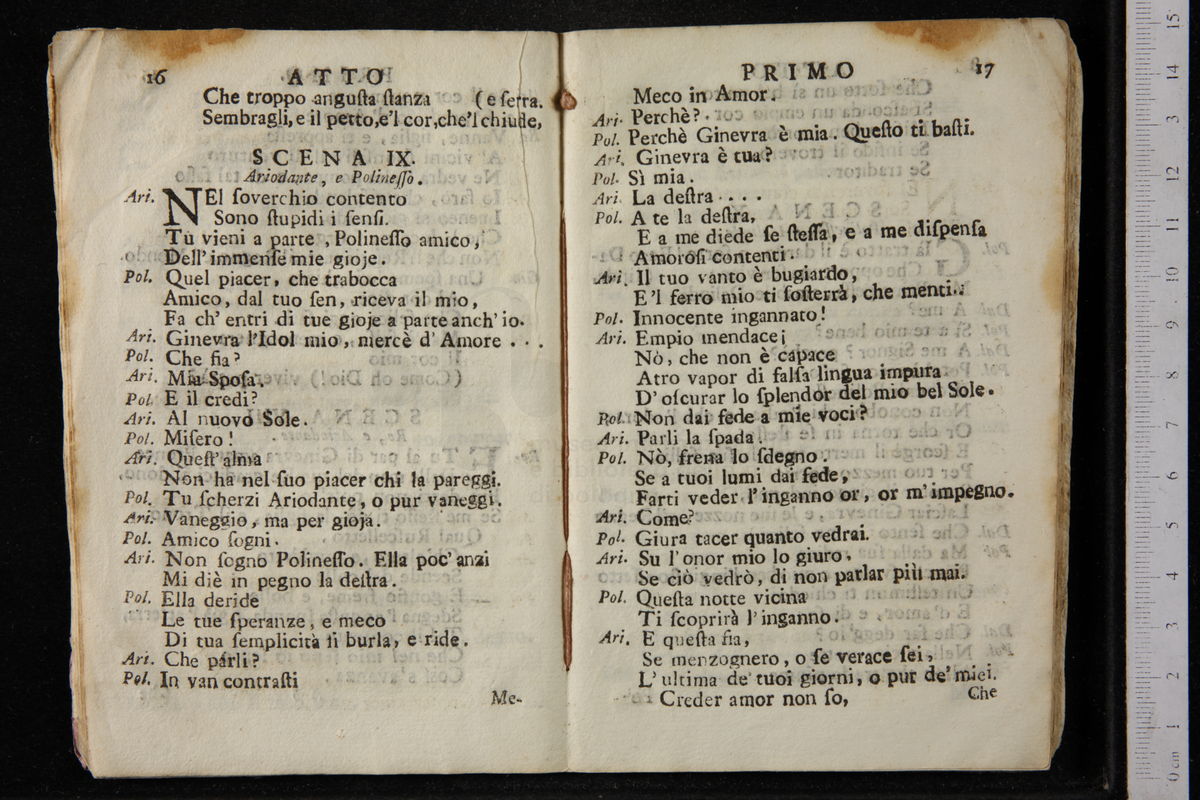 16 ATTO
Che troppo anguſta ſtanza (e ſerra.
Sembragli, e il petto, e'l cor, che'l chiude,
SCENA IX.
Ariodante, e Polineſſo.
Ari. NEl ſoverchio contento
Sono ſtupidi i ſenſi.
Tu vieni a parte, Polineſſo amico,
Dell' immenſe mie gioje.
Pol. Quel piacer, che trabocca
Amico, dal tuo ſen, riceva il mio,
Fa ch' entri di tue gioje a parte anch' io.
Ari. Ginevra l'Idol mio, mercè d' Amore . . .
Pol. Che fia?
Ari. Mia Spoſa.
Pol. E il credi?
Ari. Al nuovo Sole.
Pol. Miſero!
Ari. Queſt' alma
Non ha nel ſuo piacer chi la pareggi.
Pol. Tu ſcherzi Ariodante, o pur vaneggi.
Ari. Vaneggio, ma per gioja.
Pol. Amico ſogni.
Ari. Non ſogno Polineſſo. Ella poc' anzi
Mi diè in pegno la deſtra.
Pol. Ella deride
Le tue ſperanze, e meco
Di tua ſemplicità ſi burla, e ride.
Ari. Che parli?
Pol. In van contraſti
Me-
PRIMO 17
Meco in Amor.
Ari. Perchè?
Pol. Perchè Ginevra è mia. Queſto ti baſti.
Ari. Ginevra è tua?
Pol. Sì mia.
Ari. La deſtra . . . .
Pol. A te la deſtra,
E a me diede ſe ſteſſa, e a me diſpenſa
Amoroſi contenti.
Ari. Il tuo vanto è bugiardo,
E 'l ferro mio ti ſoſterrà, che menti.
Pol. Innocente ingannato!
Ari. Empio mendace;
Nò, che non è capace
Atro vapor di falſa lingua impura
D' oſcurar lo ſplendor del mio bel Sole.
Pol. Non dai fede a mie voci?
Ari. Parli la ſpada.
Pol. Nò, frena lo ſdegno.
Se a tuoi lumi dai fede,
Farti veder l' inganno or, or m' impegno.
Ari. Come?
Pol. Giura tacer quanto vedrai.
Ari. Su l' onor mio lo giuro.
Se ciò vedrò, di non parlar più mai.
Pol. Queſta notte vicina
Ti ſcoprirà l' inganno.
Ari. E queſta fia,
Se menzognero, o ſe verace ſei,
L' ultima de' tuoi giorni, o pur de' miei.
Creder amor non ſo,
Che